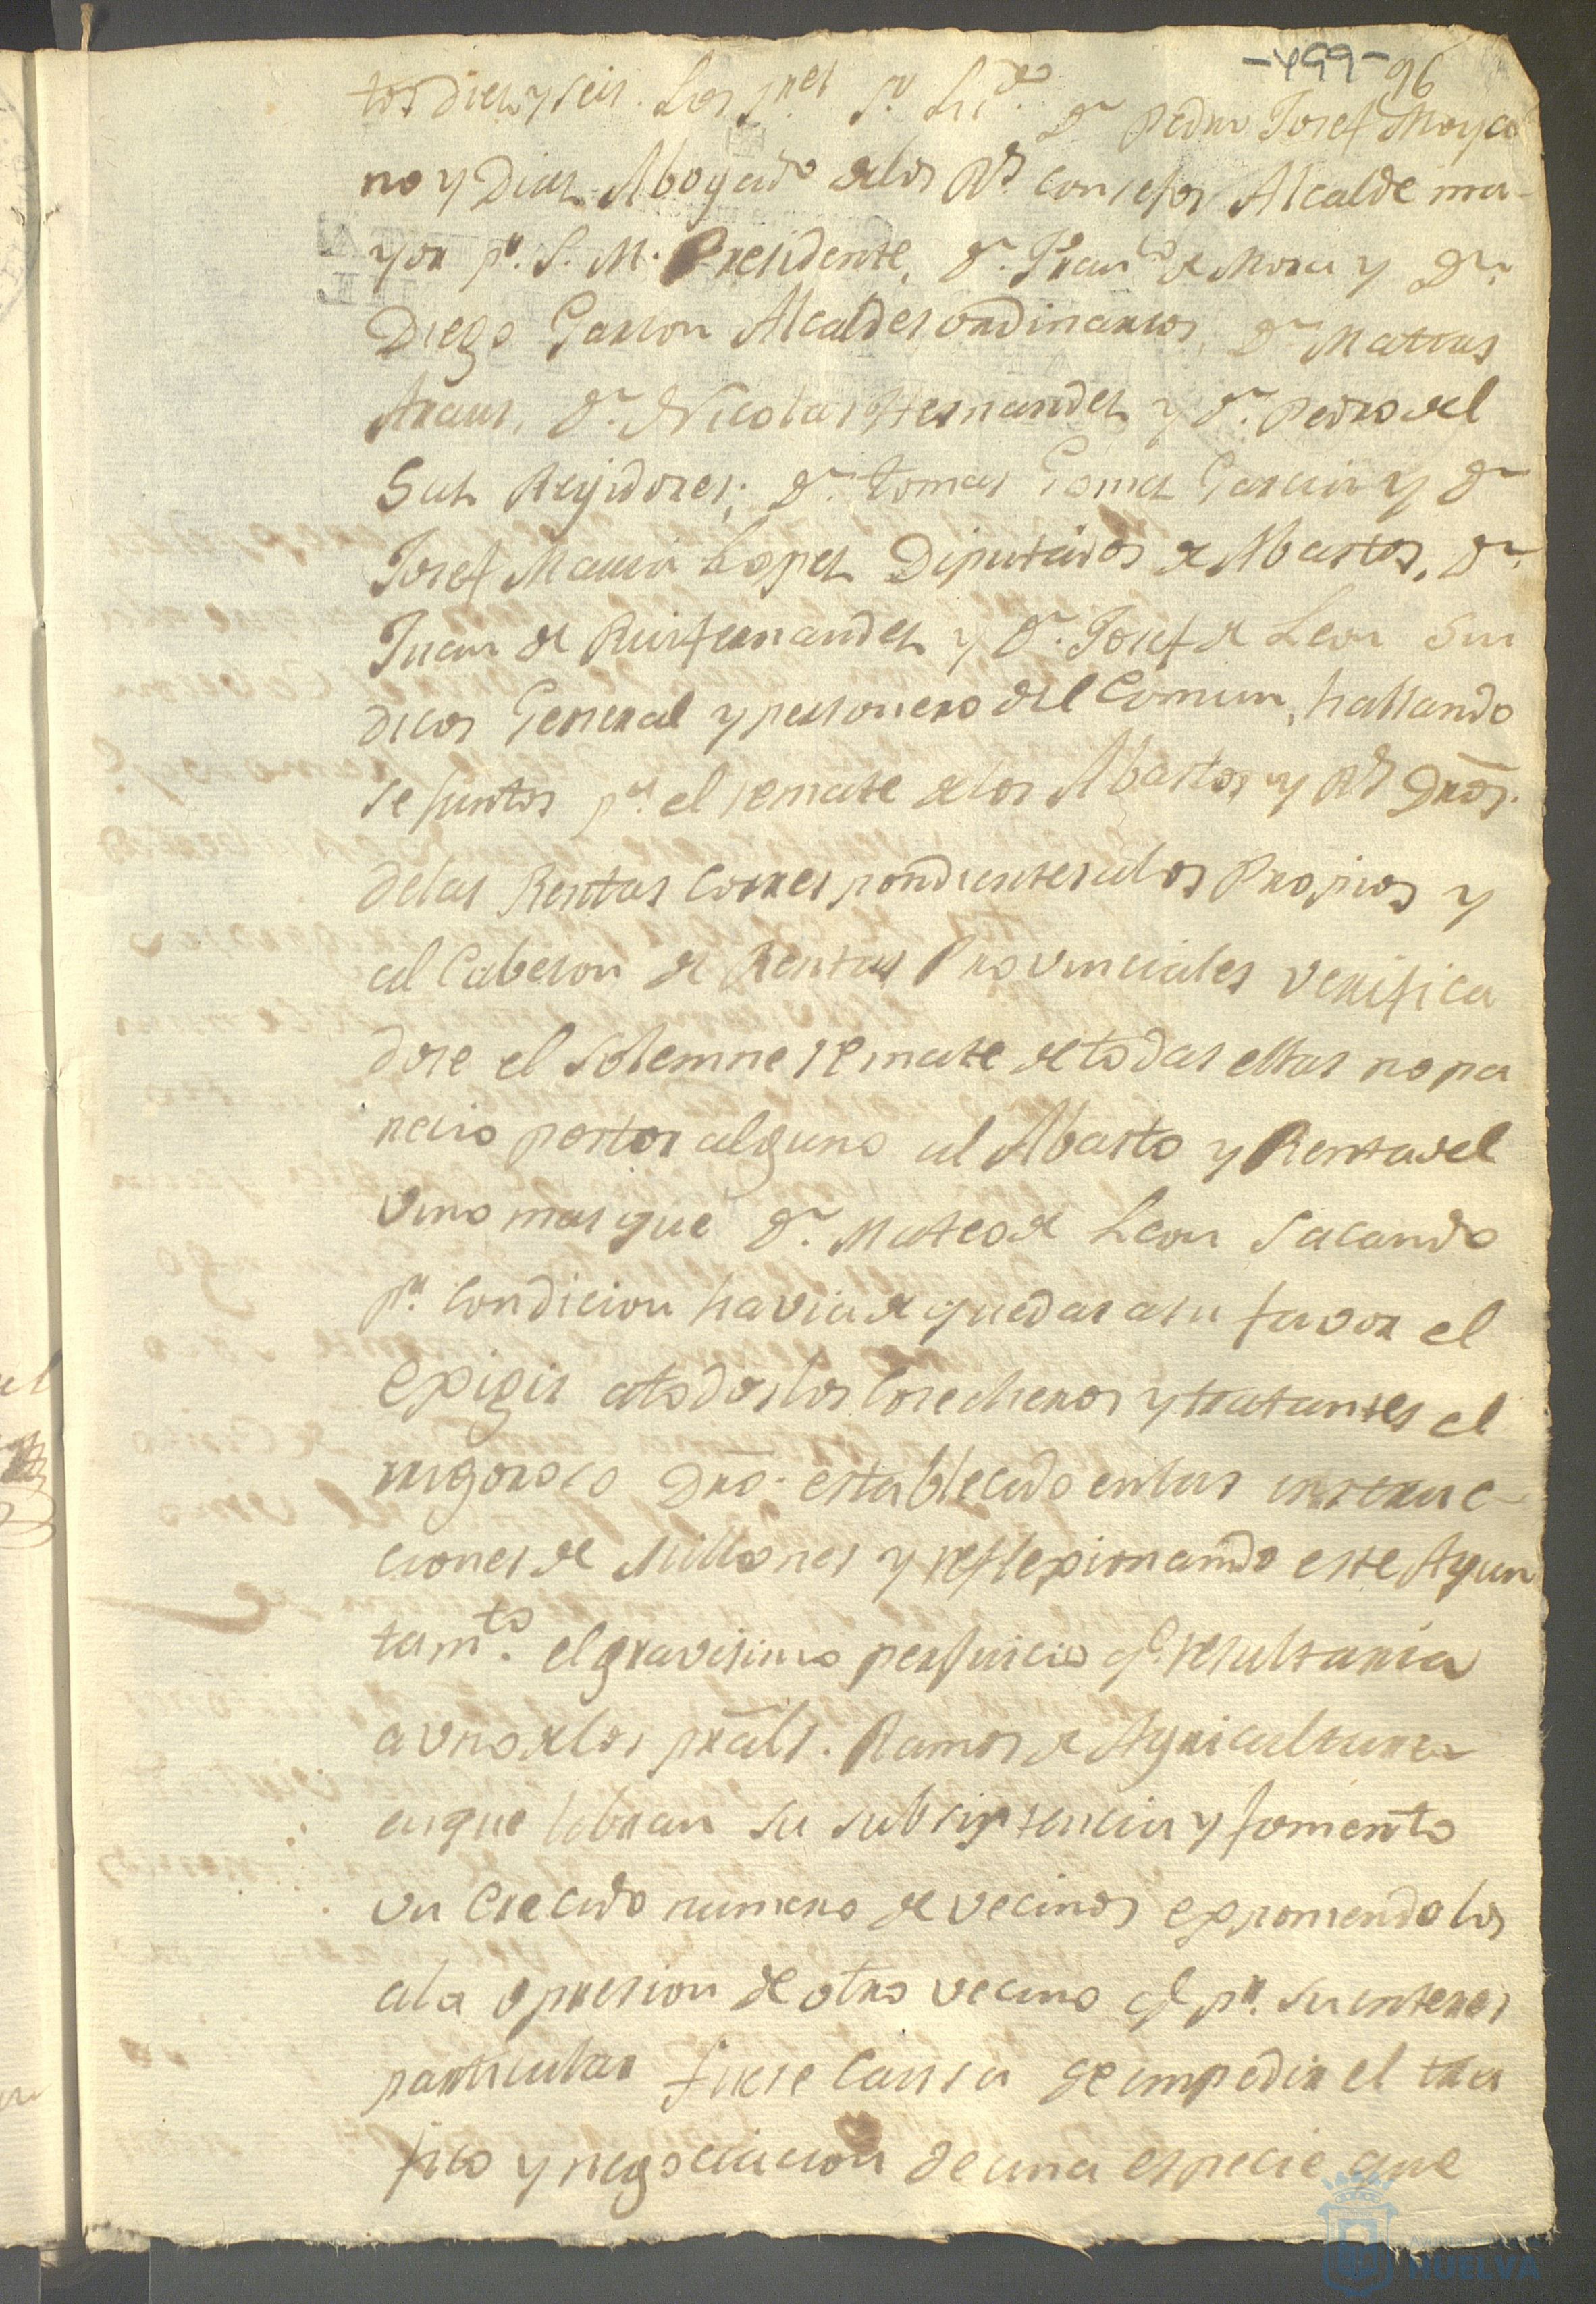 -499- 96
tos diez y seis. Los Sres Sr. Licdo. Dn Pedro Josef Moya
no y Diaz Abogado delos Rs. consejos Alcalde ma-
yor pr. S. M. Presidente, Dn. Franco de Mora y Dn.
Diego Garzon Alcaldes ordinarios, Dn Mattias
Araus, Dn. Nicolas Hernandez y Dn. Pedro del
Saz Rejidores; Dn. tomas Gomez Garcia y Dn
Josef Maria Lopez Diputados de Abastos, Dn.
Juan de Ruifernandez y Dn. Josef de Leon Sin
dicos General y personero del Comun, hallando
se juntos pa. el remate delos Abastos y Rs Dros.
delas Rentas correspondientes alos Propios y
al Cabezon de Rentas Provinciales verifica
dose el solemne remate de todas ellas no pa
recio postor alguno al Abasto y Renta del
vino mas que Dn. Mateo de Leon sacando
pr. condicion havia de quedar a su favor el
exigir a todos los cosecheros y tratantes el
rrigoroso Dro. establecido en las instruc-
ciones de Millones y reflexionando este Ayun
tamto. el gravisimo perjuicio qe. resultaria
a uno delos prals. Ramos de Agricultura
en que libran su subsistencia y fomento
un crecido numero de vecinos exponiendolos
ala opresion de otro vecino qe pr. su interes
particular fuese causa de impedir el tra
fico y negociacion de una especie que
HUELVA